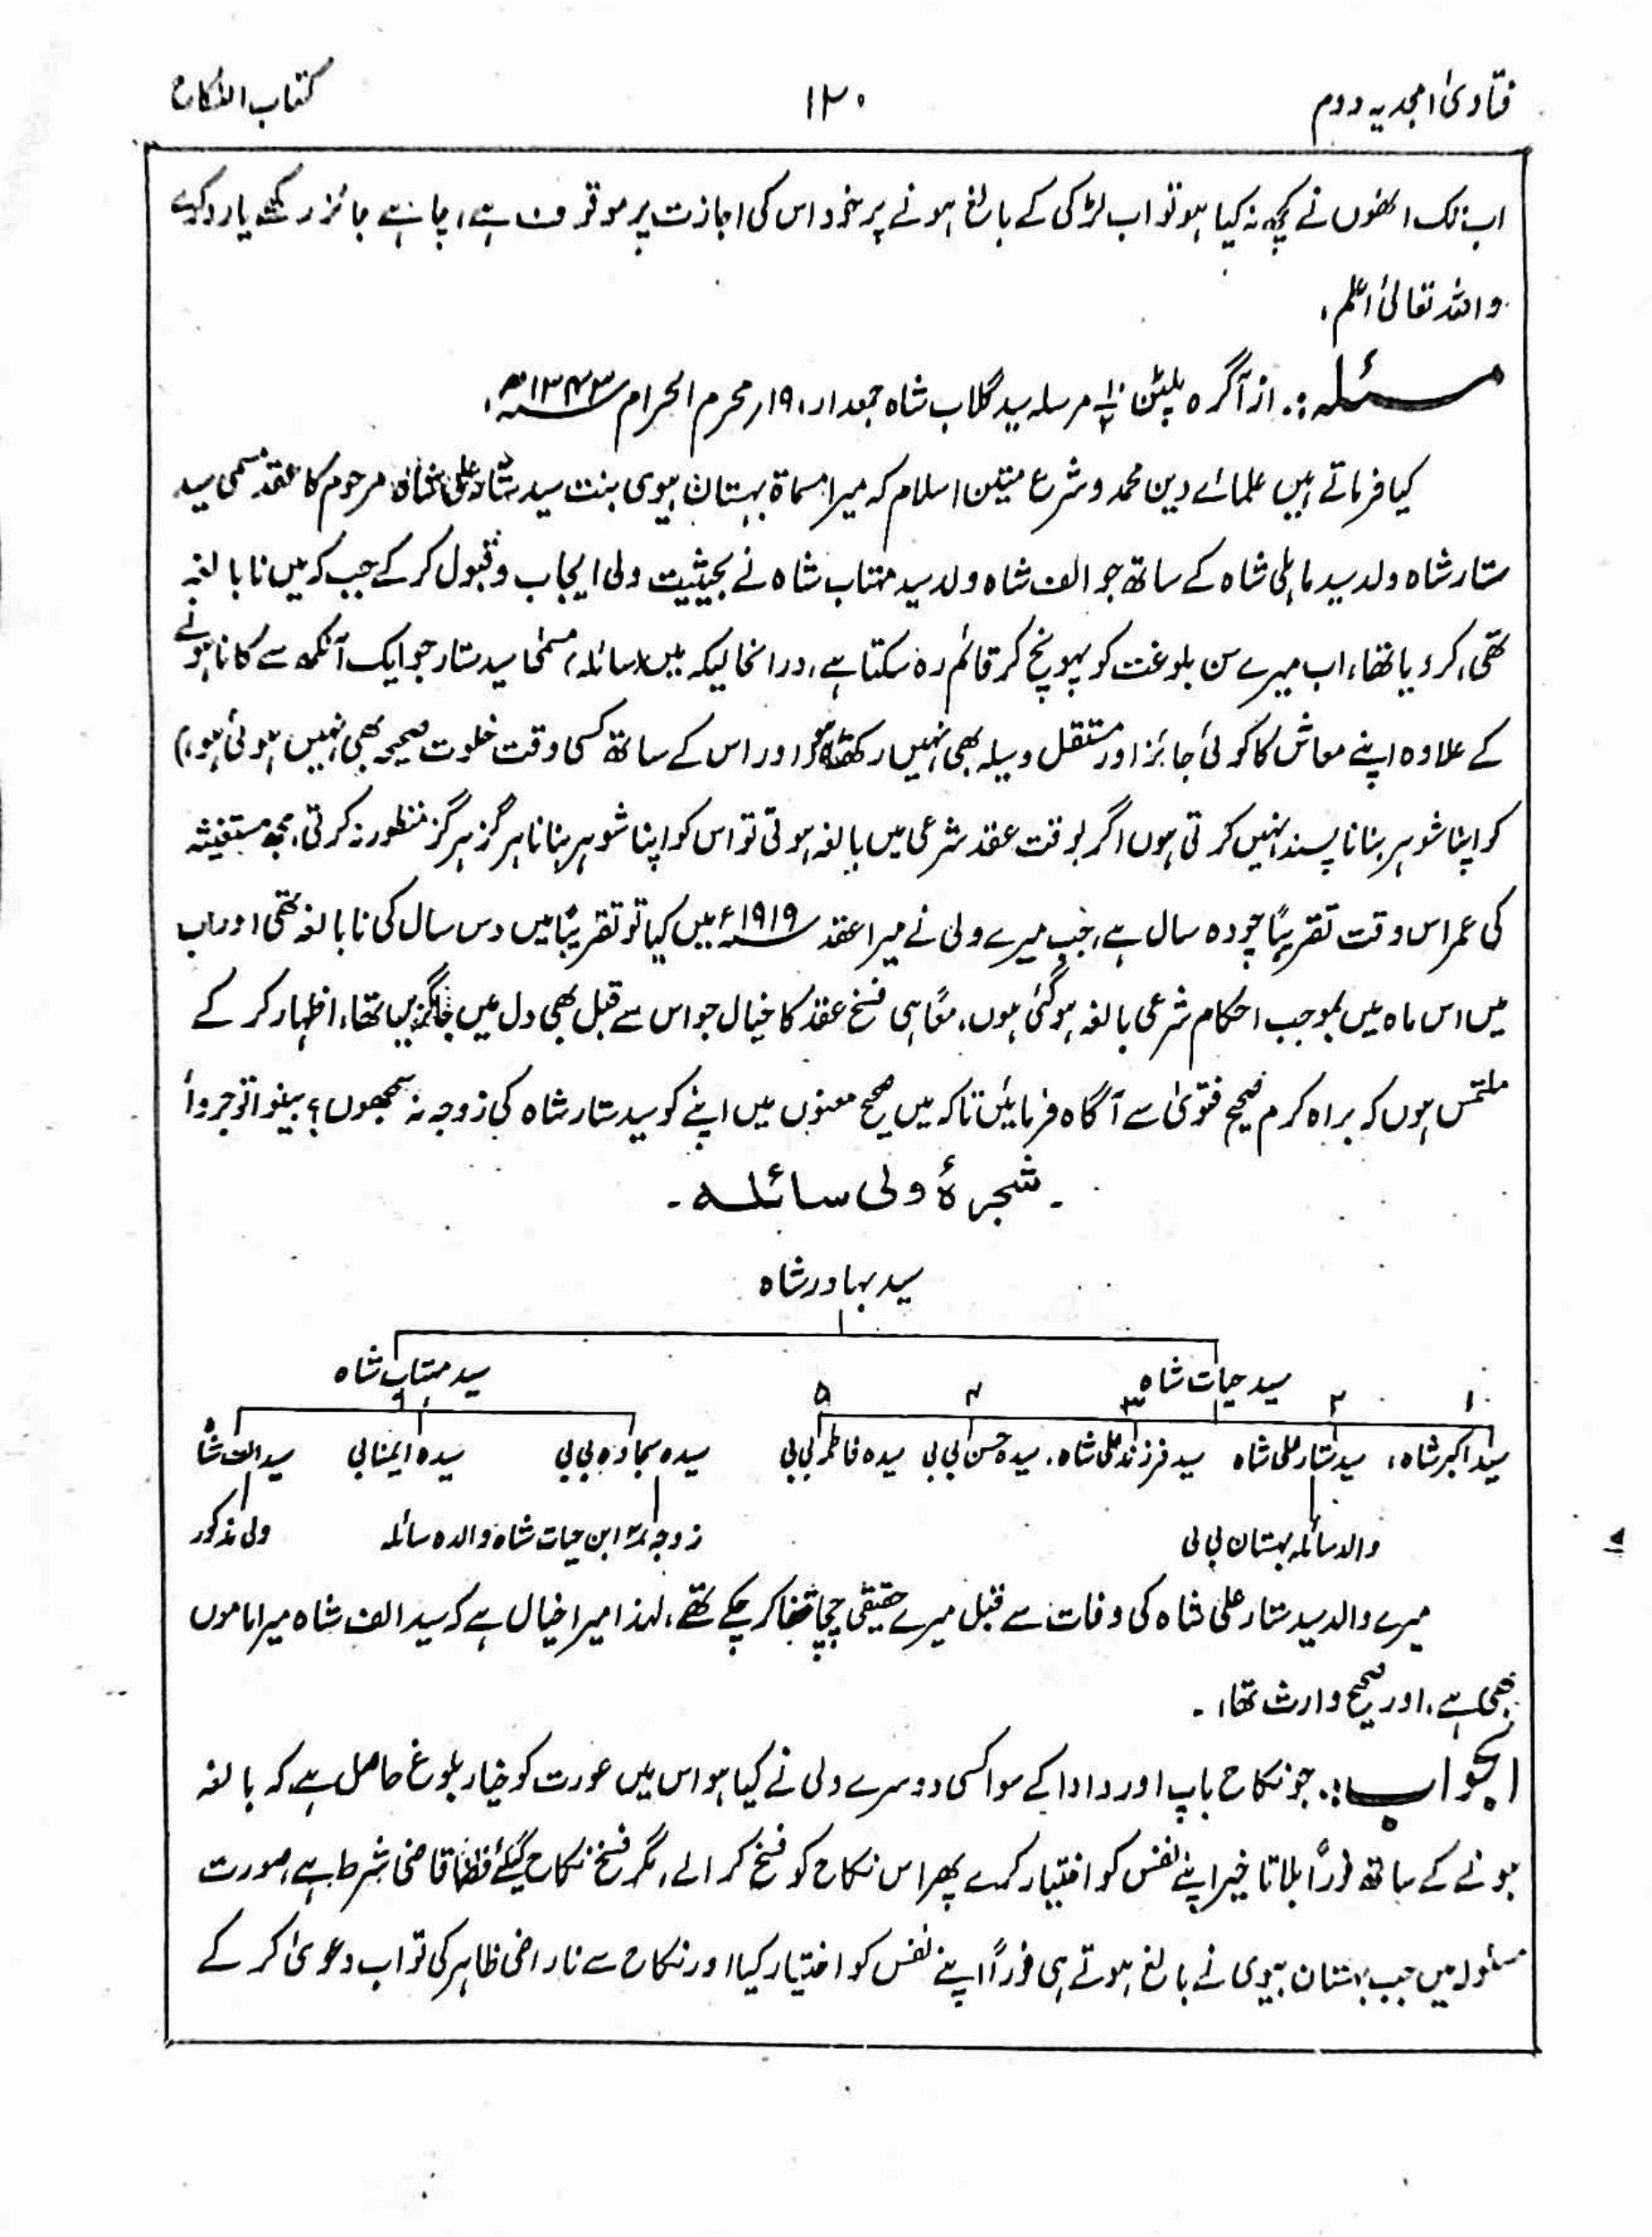 فتاویٰ امجدیہ دوم
۱۲۰
کتاب النکاح
اب تک انھوں نے کچھ نہ کیا ہو تو اب لڑکی کے بالغ ہونے پر خود اس کی اجازت پر موقوف ہے، چاہے جائز رکھے یا رد کرے
واللہ تعالیٰ اعلم،
مسئلہ:۔ از آگرہ پلٹن مرسلہ سید گلاب شاہ جمعدار، ۱۹؍ محرم الحرام ۱۳۴۳ھ،
کیا فرماتے ہیں علمائے دین محمد و شرع متین اسلام کہ میرا مسماۃ بہستان بیوی بنت سید ستار علی شاہ مرحوم کا عقد مسمی سید
ستار شاہ ولد سید ماہلی شاہ کے ساتھ جو الف شاہ ولد سید مہتاب شاہ نے بحیثیت ولی ایجاب و قبول کر کے جب کہ میں نابالغہ
تھی، کر دیا تھا، اب میرے سن بلوغت کو پہونچ کر قائم رہ سکتا ہے، درانحالیکہ میں (سائلہ) مسمیٰ سید ستار جو ایک آنکھ سے کانا ہونے
کے علاوہ اپنے معاش کا کوئی جائز اور مستقل وسیلہ بھی نہیں رکھتا ہو اور اس کے ساتھ کسی وقت خلوت صحیحہ بھی نہیں ہوئی ہو،)
کو اپنا شوہر بنانا پسند نہیں کرتی ہوں اگر بوقت عقد شرعی میں بالغہ ہوتی تو اس کو اپنا شوہر بنانا ہرگز ہرگز منظور نہ کرتی، مجھ مستغیثہ
کی عمر اس وقت تقریبًا چودہ سال ہے، جب میرے ولی نے میرا عقد ۱۹۱۹ء میں کیا تو تقریبًا میں دس سال کی نابالغہ تھی اور اب
میں اس ماہ میں بموجب احکام شرعی بالغہ ہو گئی ہوں، معًا ہی فسخ عقد کا خیال جو اس سے قبل بھی دل میں جاگزیں تھا، اظہار کر کے
ملتمس ہوں کہ براہ کرم صحیح فتویٰ سے آگاہ فرمائیں تاکہ میں صحیح معنوں میں اپنے کو سید ستار شاہ کی زوجہ نہ سمجھوں؟ بینوا توجروا
۔ شجرۂ ولی سائلہ ۔
سید بہادر شاہ
سید حیات شاہ سید مہتاب شاہ
۱ ۲ ۳ ۴ ۵
سید اکبر شاہ، سید ستار علی شاہ سید فرزند علی شاہ، سیدہ حسن بی بی سیدہ فاطمہ بی بی سیدہ سجادہ بی بی سیدہ ایمنا بی سید الف شاہ
والد سائلہ بہستان بی بی زوجہ ۲ ابن حیات شاہ والدہ سائلہ ولی مذکور
میرے والد سید ستار علی شاہ کی وفات سے قبل میرے حقیقی چچا قضا کر چکے تھے، لہذا میرا خیال ہے کہ سید الف شاہ میرا ماموں
بھی ہے، اور صحیح وارث تھا، ۔
الجواب:۔ جو نکاح باپ اور دادا کے سوا کسی دوسرے ولی نے کیا ہو اس میں عورت کو خیار بلوغ حاصل ہے کہ بالغہ
ہونے کے ساتھ فورًا بلا تاخیر اپنے نفس کو اختیار کرے پھر اس نکاح کو فسخ کرالے، مگر فسخ نکاح کیلئے قضا قاضی شرط ہے، صورت
مسئولہ میں جب بہستان بیوی نے بالغ ہوتے ہی فورًا اپنے نفس کو اختیار کیا اور نکاح سے ناراضی ظاہر کی تو اب دعویٰ کر کے